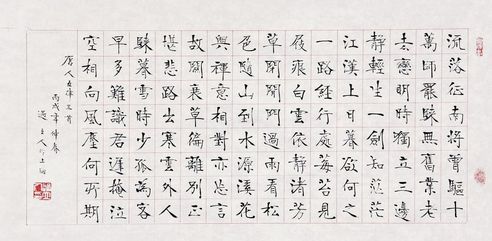 流落征南將曾驅十
萬師罷歸無舊業老
去戀明時獨立三邊
靜輕生一劍知茫茫
江漢上日暮欲何之
一路經行處莓苔見
屐痕白雲依靜渚芳
草閉閒門過雨看松
色隨山到水源溪花
與禪意相對亦忘言
故關衰草徧離別正
堪悲路出寒雲外人
歸暮雪時少孤為客
早多難識君遲掩泣
空相向風塵何所期
唐人五律三首
丙戌年仲春